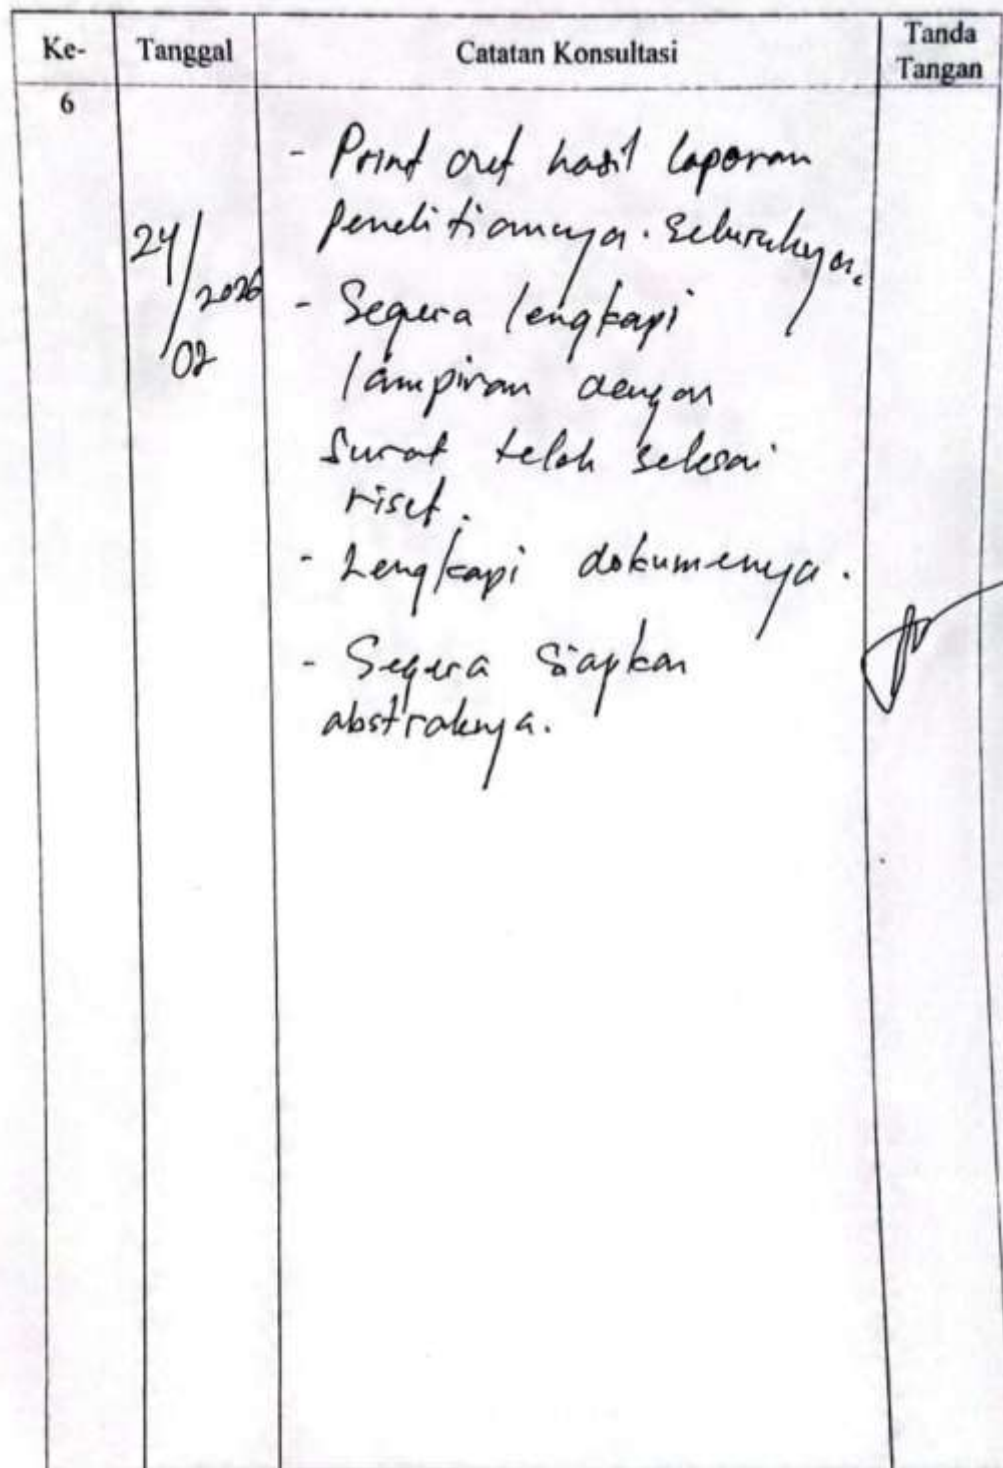 Ke- Tanggal Catatan Konsultasi Tanda Tangan
6
24/02 2026
- Print out hasil laporan
penelitiannya. Seluruhnya.
- Segera lengkapi
lampiran dengan
surat telah selesai
riset.
- Lengkapi dokumenya.
- Segera siapkan
abstraknya.